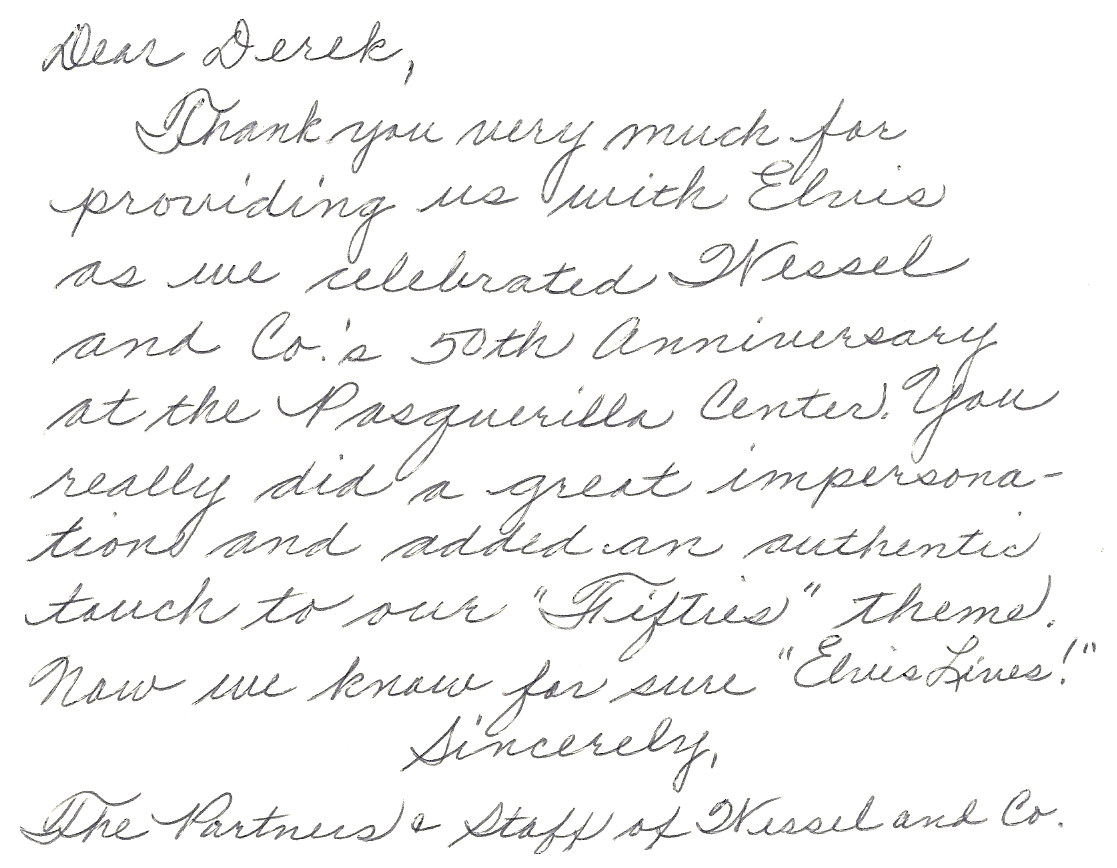 Dear Derek,
Thank you very much for
providing us with Elvis
as we celebrated Wessel
and Co.'s 50th Anniversary
at the Pasquerilla Center. You
really did a great impersona-
tion and added an authentic
touch to our "Fifties" theme.
Now we know for sure "Elvis Lives!"
Sincerely,
The Partners & Staff of Wessel and Co.